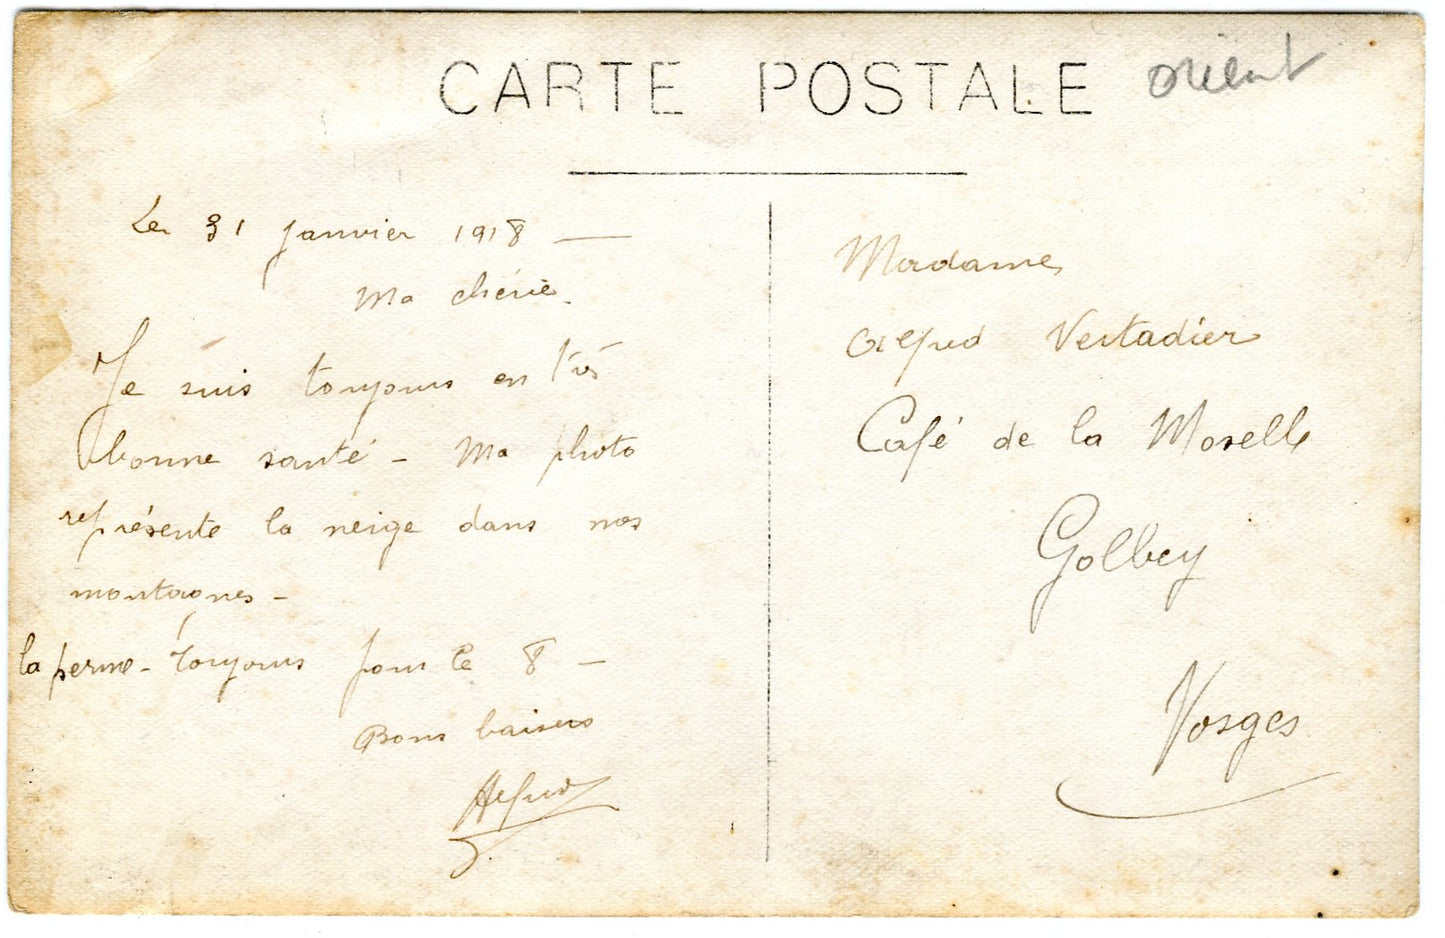 CARTE POSTALE
orient
Le 31 janvier 1918 —
Ma chérie.
Je suis toujours en très
bonne santé - Ma photo
représente la neige dans nos
montagnes -
la perme - toujours pour le 8 —
Bons baisers
Alfred
Madame
Alfred Vertadier
Café de la Moselle
Golbey
Vosges